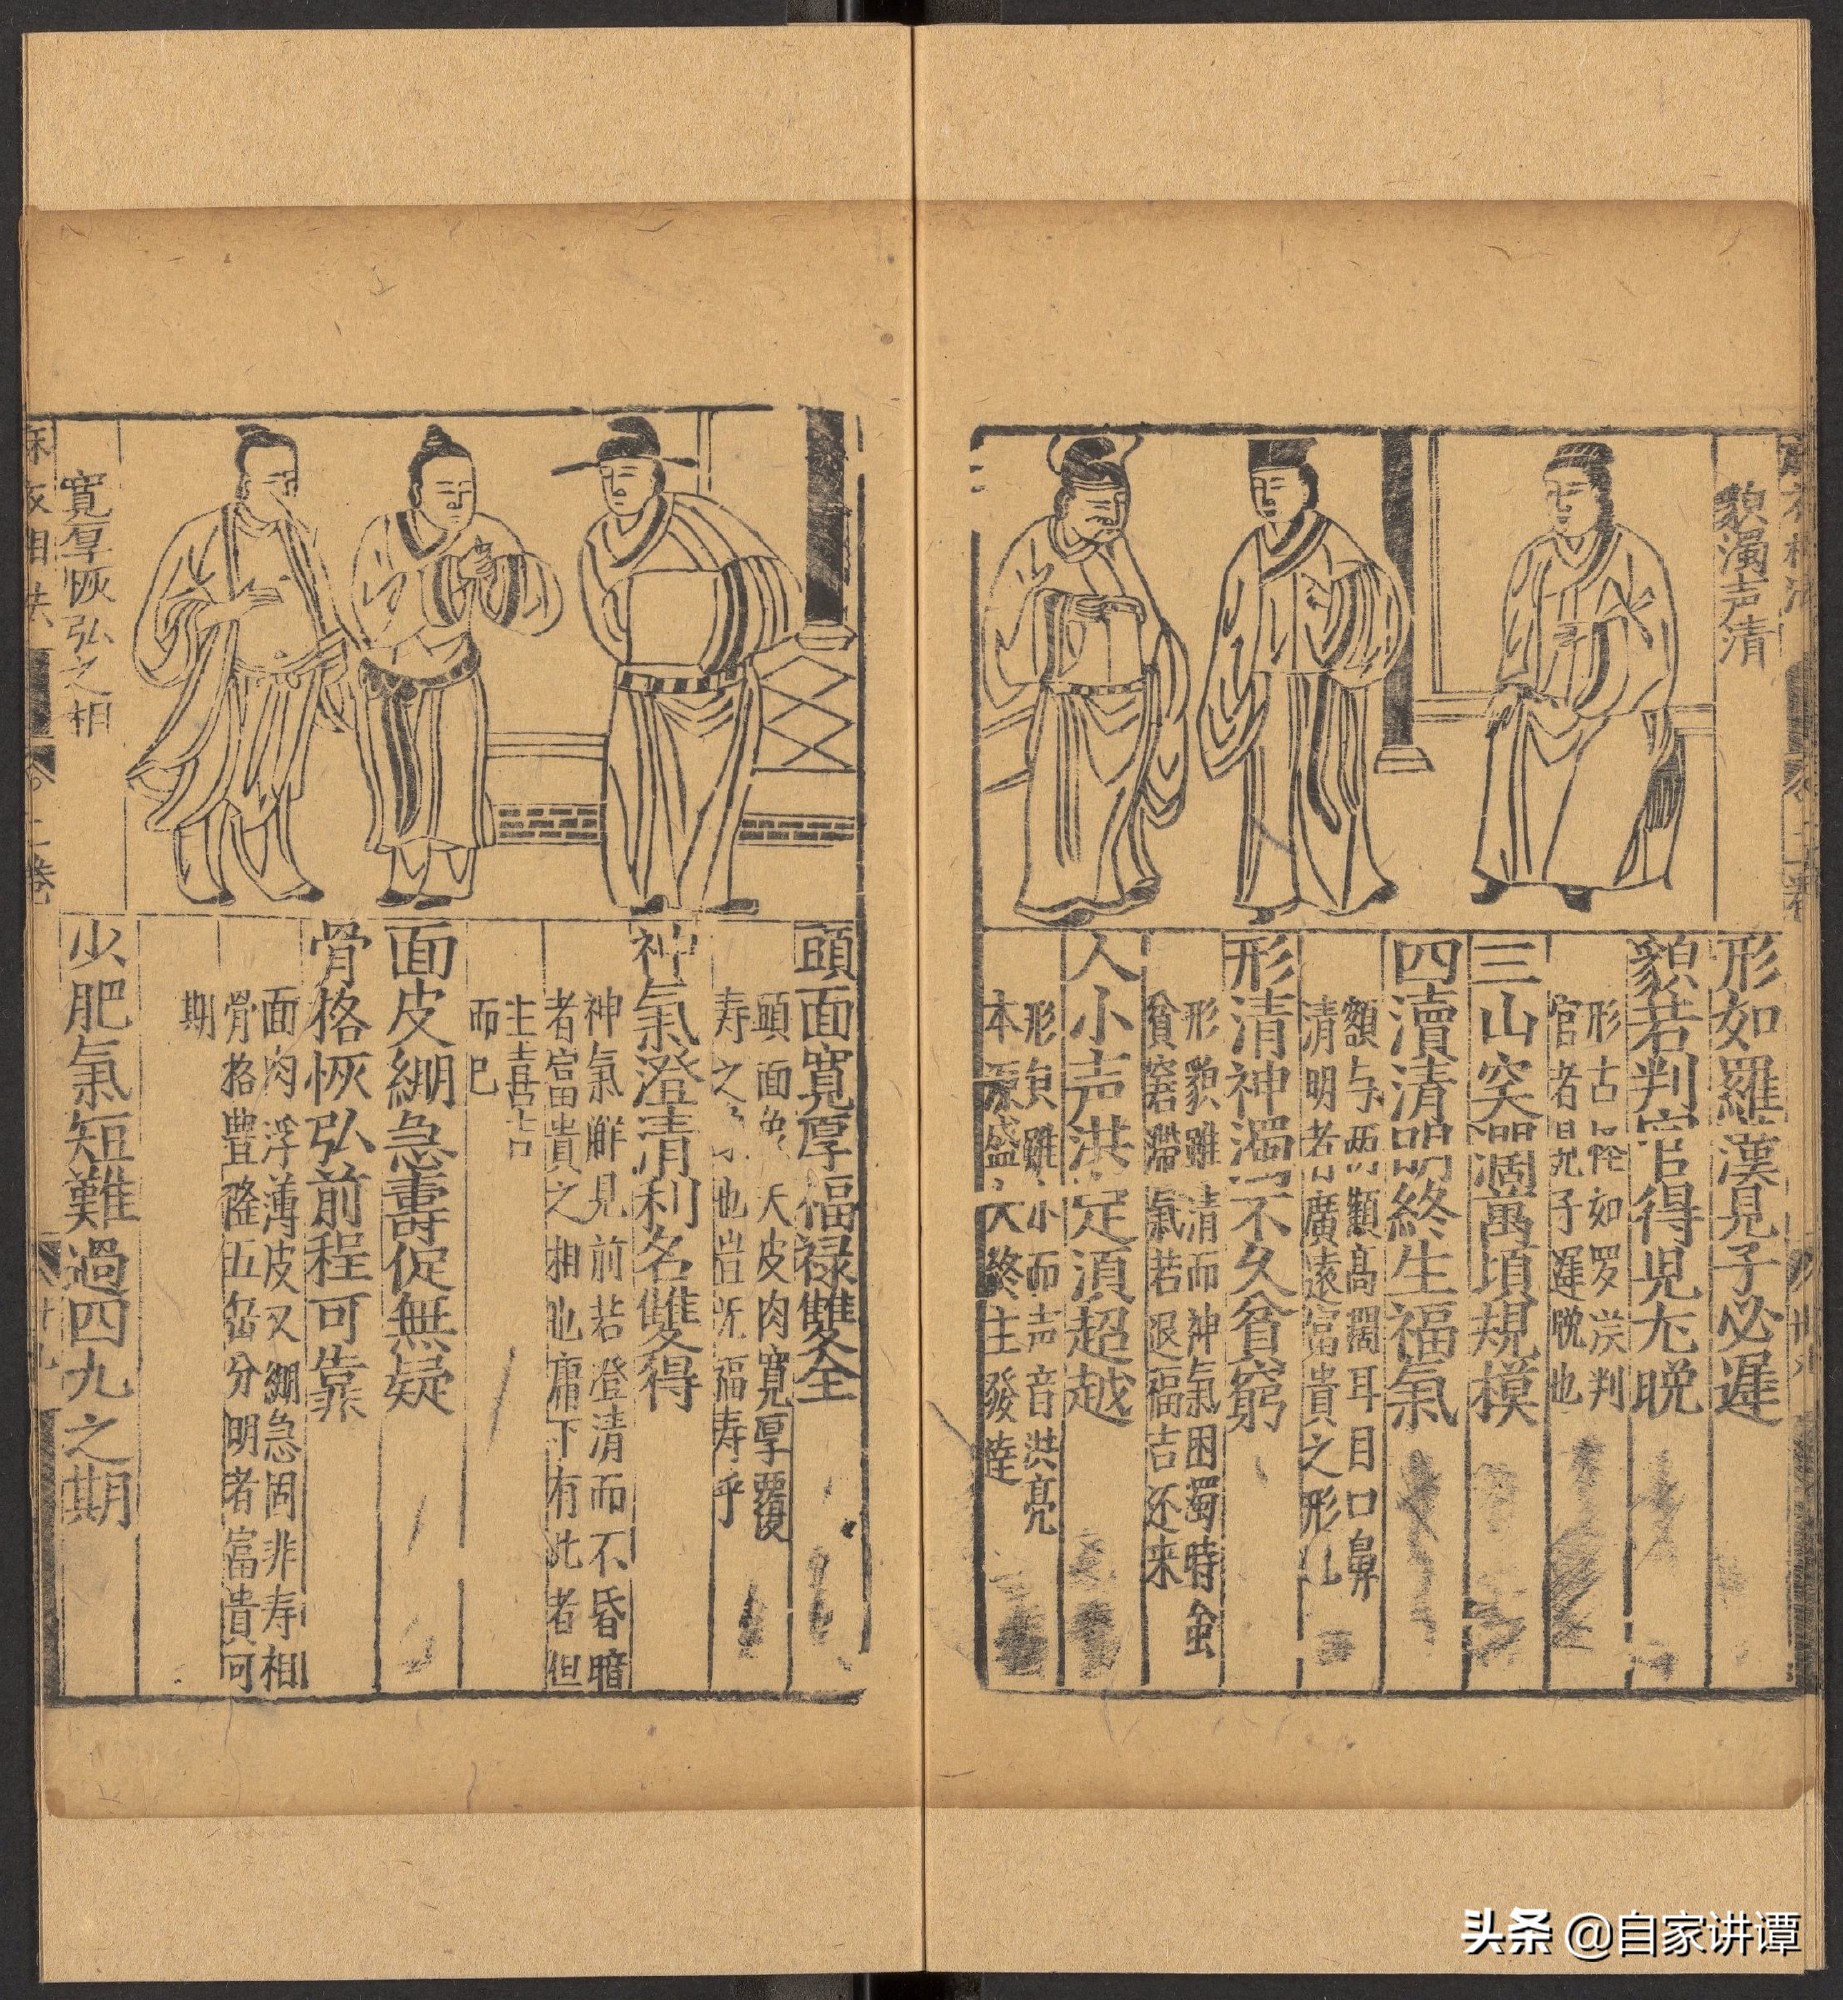 貌濁声清
形如羅漢見子必遲
貌若判官得児尢晩
形古怪如罗漢判
官者見子遲晩也
三山突濶萬頃規模
四瀆清明終生福氣
額与两顴髙濶耳目口鼻
清明者廣遠富貴之形
形清神濁不久貧窮
形貌雖清而神氣困濁時
貧窘滞氣若退福吉还来
人小声洪定須超越
形貟雖小而声音洪亮
本源盛大終主發達
頭面寛厚福禄雙全
頭面 大皮肉寛厚
寿之 也豈旡福寿乎
神氣澄清利名雙得
神氣觧見前若澄清而不昏暗
者富貴之相也庸下有此者但
主喜吉
而已
面皮綳急壽促無疑
骨格恢弘前程可靠
面肉浮薄皮又綳急固非寿相
骨格豊隆五岳分明者富貴可
期
少肥氣短難過四九之期
寛厚恢弘之相
麻衣相法
二卷
头条 @自家讲谭